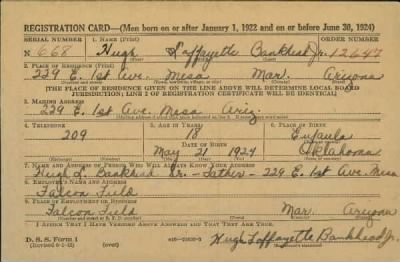 REGISTRATION CARD—(Men born on or after January 1, 1922 and on or before June 30, 1924)
SERIAL NUMBER 1. NAME (Print) ORDER NUMBER
N 668 Hugh Laffayette Bankhead Jr. 12647
2. PLACE OF RESIDENCE (Print)
229 E. 1st Ave. Mesa Mar. Arizona
[THE PLACE OF RESIDENCE GIVEN ON THE LINE ABOVE WILL DETERMINE LOCAL BOARD
JURISDICTION; LINE 2 OF REGISTRATION CERTIFICATE WILL BE IDENTICAL]
3. MAILING ADDRESS
229 E. 1st Ave. Mesa Ariz.
4. TELEPHONE 5. AGE IN YEARS 6. PLACE OF BIRTH
209 18 Eufaula
DATE OF BIRTH
May 21 1924 Oklahoma
7. NAME AND ADDRESS OF PERSON WHO WILL ALWAYS KNOW YOUR ADDRESS
Hugh L. Bankhead Sr. - Father - 229 E. 1st Ave. Mesa
8. EMPLOYER'S NAME AND ADDRESS
Falcon Field
9. PLACE OF EMPLOYMENT OR BUSINESS
Falcon Field Mar. Arizona
I AFFIRM THAT I HAVE VERIFIED ABOVE ANSWERS AND THAT THEY ARE TRUE.
D. S. S. Form 1
(over)
Hugh Laffayette Bankhead Jr.